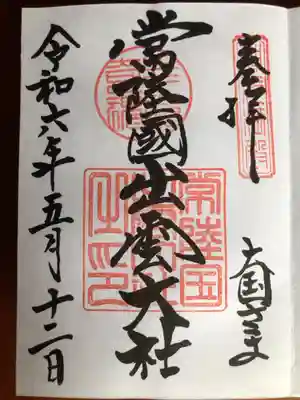 奉拝
大国さま
常陸國出雲大社
常陸国
令和六年五月十二日